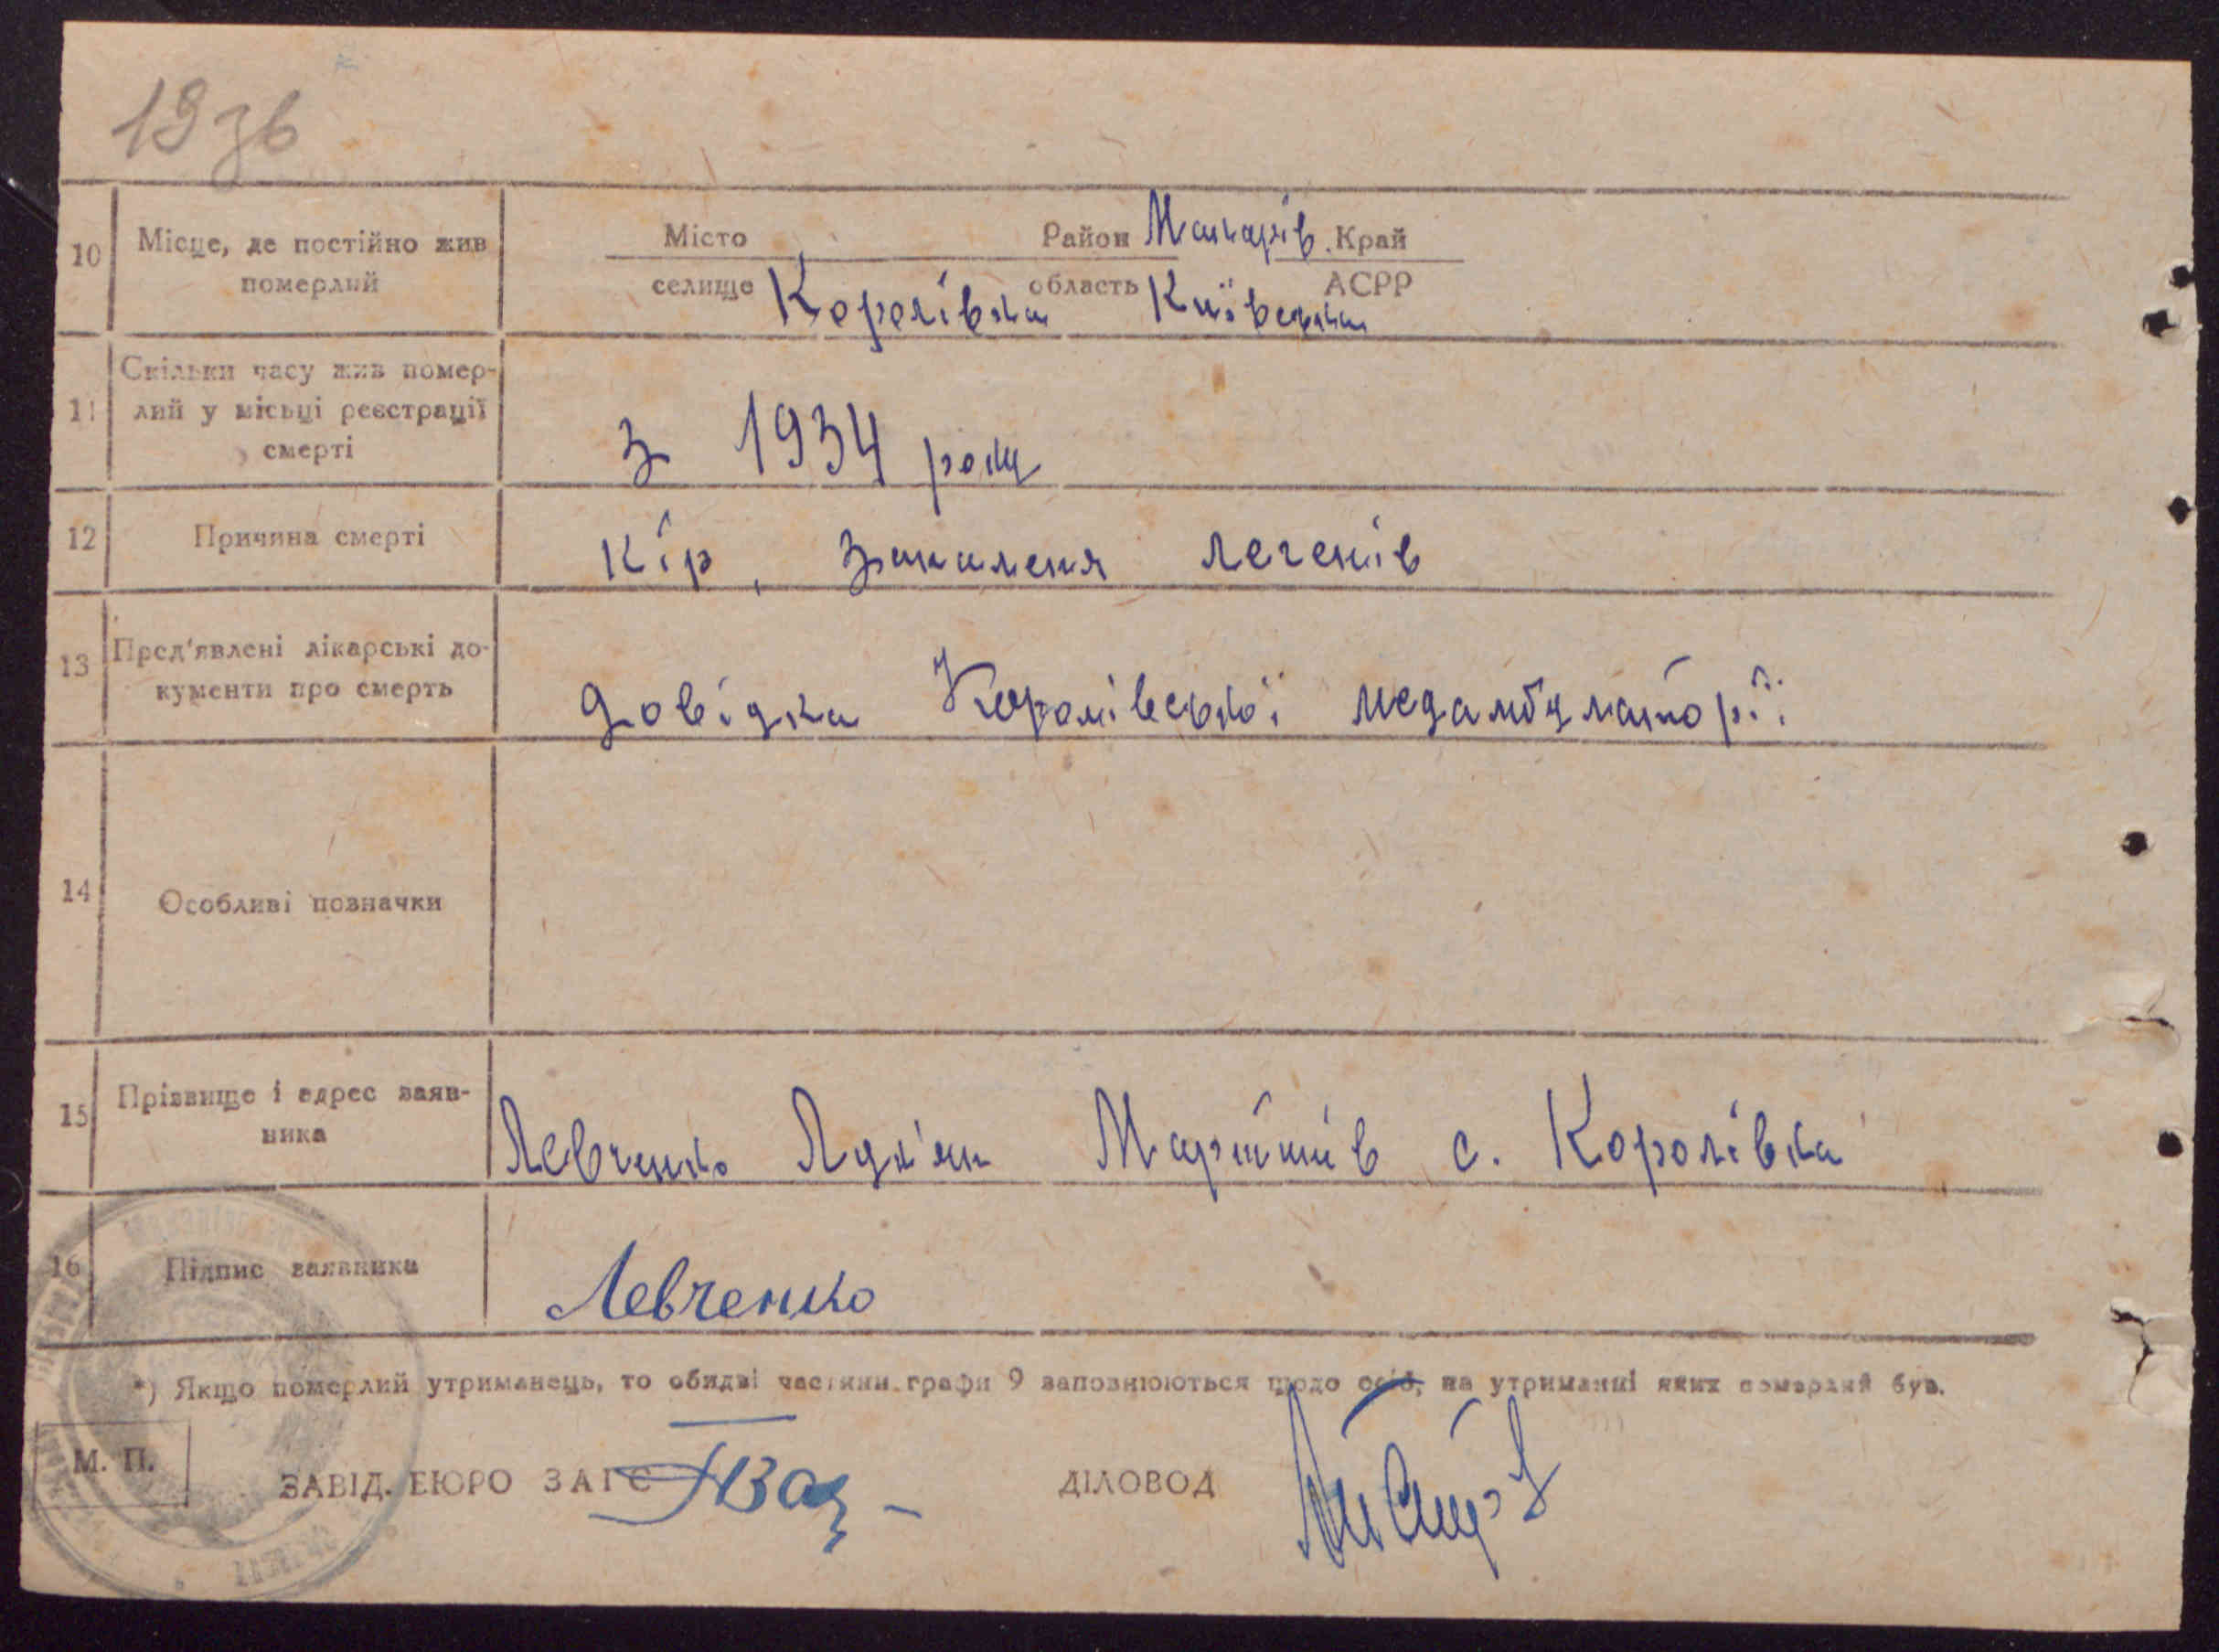 19зв
10 Місце, де постійно жив Місто Район Макарів. Край
померлий селище Королівка область Київська АСРР
Скільки часу жив помер-
11 лий у місьці реєстрації
смерті з 1934 року
12 Причина смерті Кір, запаленя легенів
13 Пред'явлені лікарські до-
кументи про смерть довідка Королівської медамбулаторії
14 Особливі позначки
15 Прізвище і адрес заяв-
ника Левченко Мартинів с. Королівка
16 Підпис заявника Левченко
*) Якщо померлий утриманець, то обидві частини графи 9 заповнюються щодо осіб, на утриманні яких померлий був.
М. П.
ЗАВІД. БЮРО ЗАГС ДІЛОВОД